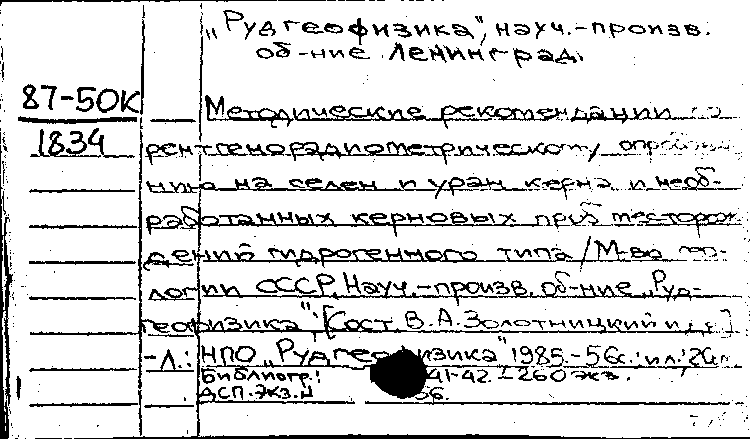 „Рудгеофизика", науч.-произв.
об-ние. Ленинград.
87-50К
1834
Методические рекомендации по
рентгенорадиометрическому опробова-
нию на селен и уран керна и необ-
работанных керновых проб месторож
дений гидрогенного типа / М-во гео-
логии СССР, Науч.-произв. об-ние „Руд-
геофизика"; [Сост. В. А. Золотницкий и др.]
-Л.: НПО „Рудгеофизика" 1985.- 56с.: ил.; 20см
Библиогр.: 41-42. - 260 экз.
ДСП. Экз. N 56.